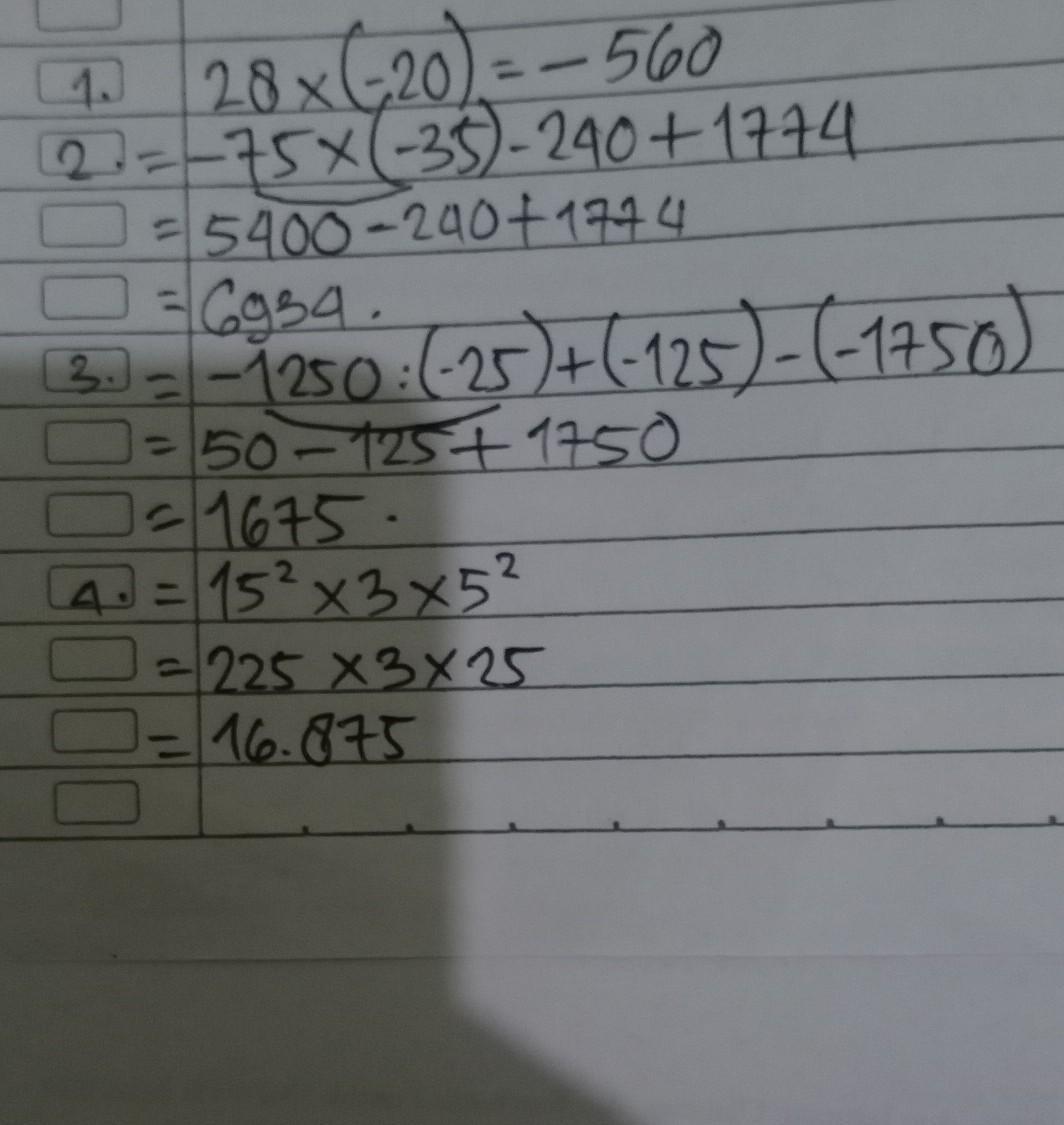 1. 28 × (-20) = - 560
2. = -75 × (-35) - 240 + 1774
= 5400 - 240 + 1774
= 6934.
3. = -1250 : (-25) + (-125) - (-1750)
= 50 - 125 + 1750
= 1675.
4. = 15² × 3 × 5²
= 225 × 3 × 25
= 16.875